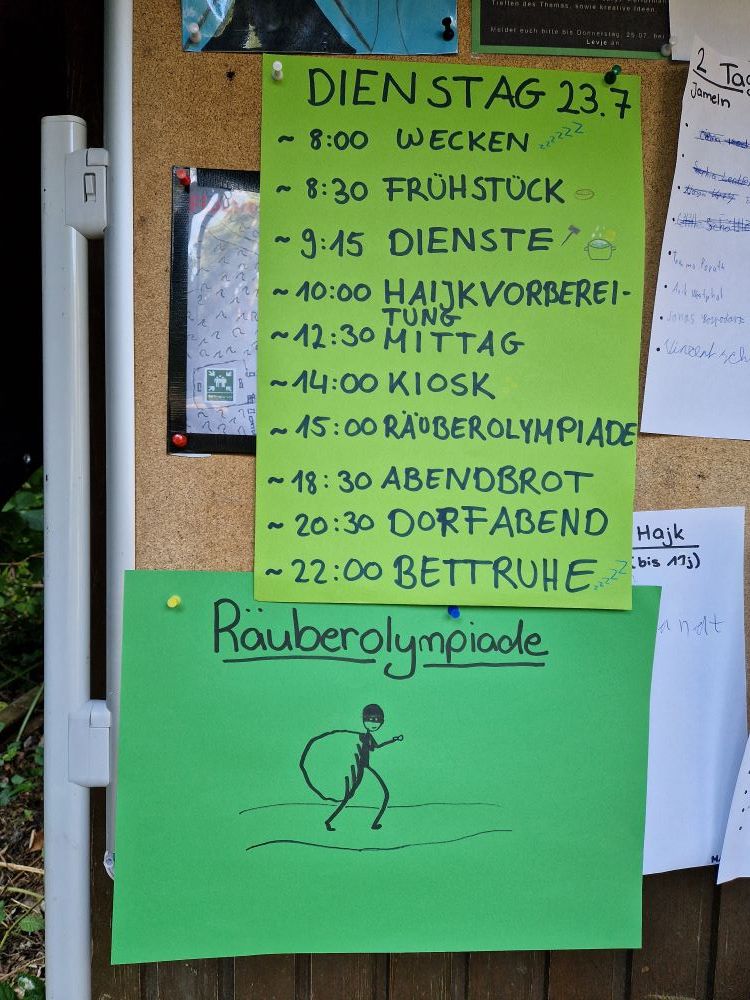 Tiefen des Themas, sowie kreative Ideen.
Meldet euch bitte bis Donnerstag, 25.07. bei
Levje an.
DIENSTAG 23.7
~ 8:00 WECKEN zzzzz
~ 8:30 FRÜHSTÜCK
~ 9:15 DIENSTE
~ 10:00 HAIJKVORBEREI-
TUNG
~ 12:30 MITTAG
~ 14:00 KIOSK
~ 15:00 RÄUBEROLYMPIADE
~ 18:30 ABENDBROT
~ 20:30 DORFABEND
~ 22:00 BETTRUHE zzzzz
Räuberolympiade
2 Tag
Jameln
Vincent sch
Hajk
(bis 11j)
andt